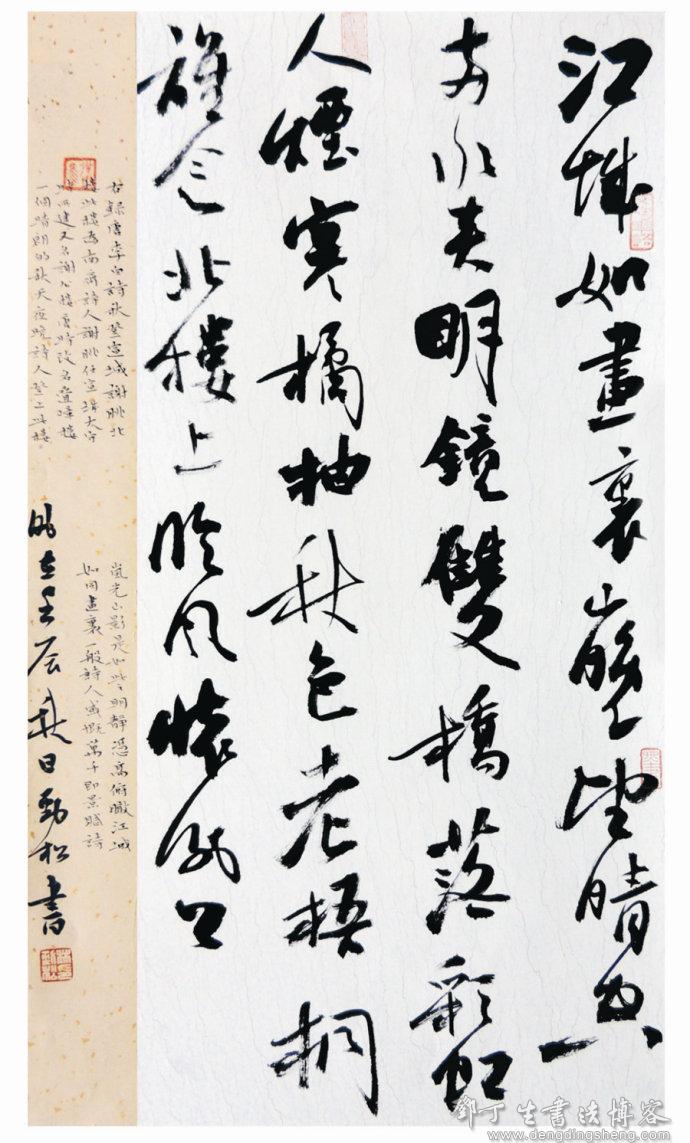 江城如畫裏山曉望晴空
兩水夾明鏡雙橋落彩虹
人煙寒橘柚秋色老梧桐
誰念北樓上臨風懷謝公
右錄唐李白詩秋登宣城謝朓北
樓此樓為南齊詩人謝朓任宣城太守
時所建又名謝公樓唐時改名疊嶂樓
一個晴朗的秋天夜晚詩人登上此樓
嵐光山影是如此明靜憑高俯瞰江城
如同畫裏一般詩人感慨萬千即景賦詩
時在壬辰日勁松書
鄧丁生書法博客
www.dengdingsheng.com